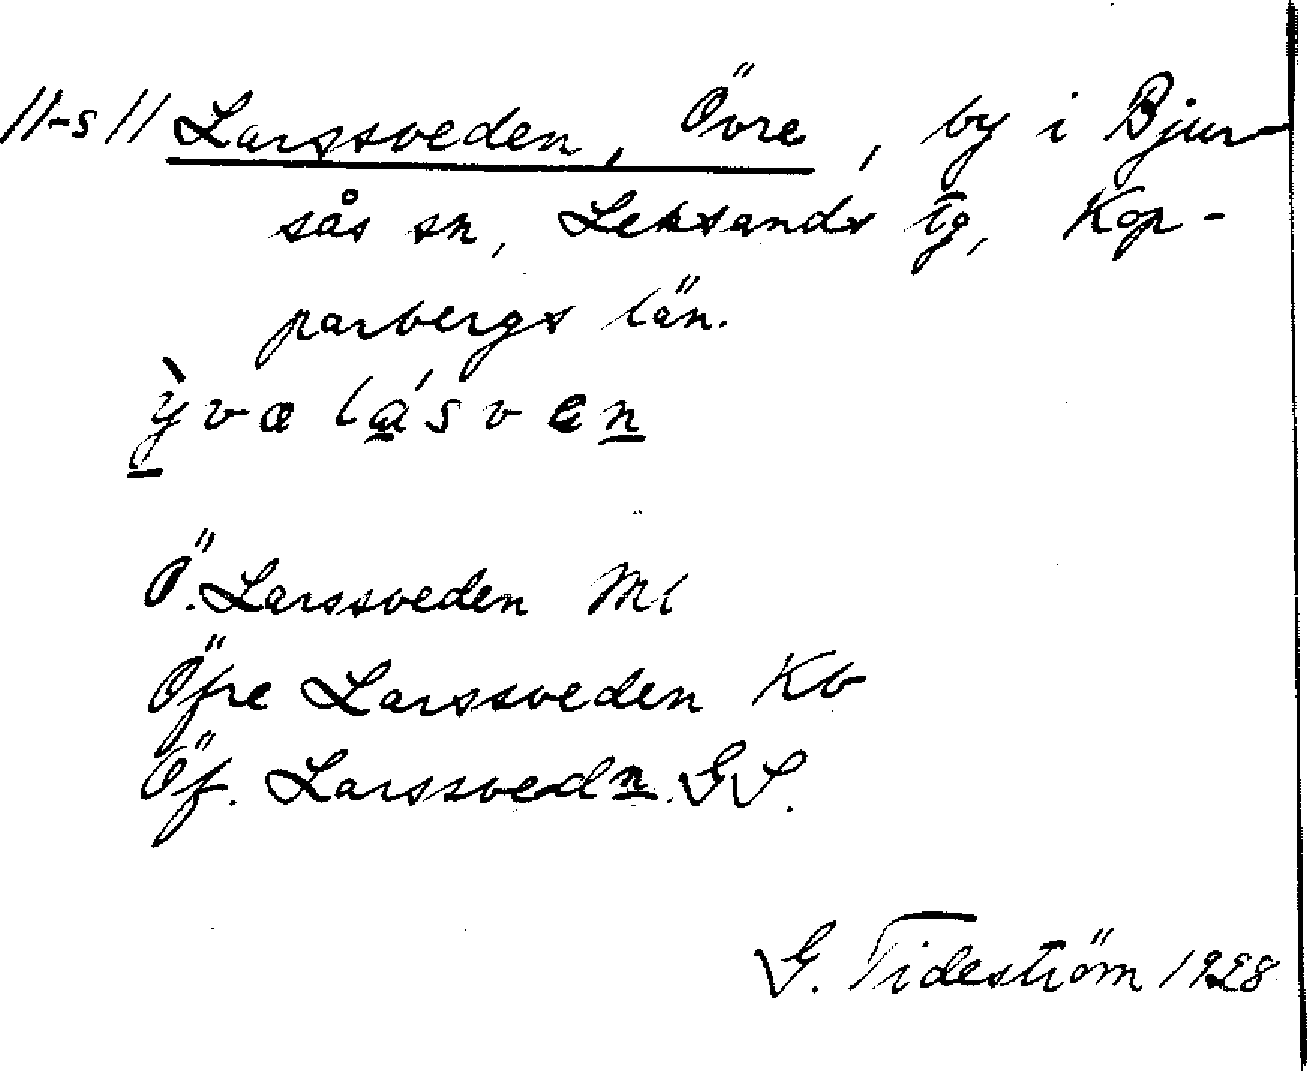 //-s// Larssveden, Övre, by i Bjur-
sås sn, Leksands tg, Kop-
parbergs län.
ỳvæ lásven
Ö. Larssveden Ml
Öfre Larssveden Kb
Öf. Larssvedn. GS.
G. Tideström 1928